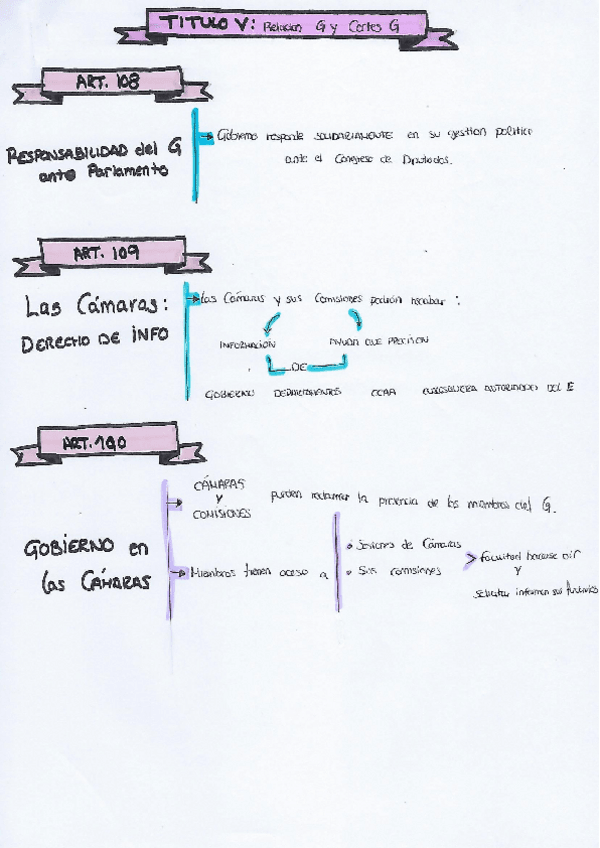 TITULO V: Relacion G y Cortes G
ART. 108
RESPONSABILIDAD del G
ante Parlamento
Gobierno responde SOLIDARIAMENTE en su gestion politica
ante el Congreso de Diputados.
ART. 109
Las Cámaras:
DERECHO DE INFO
Las Cámaras y sus Comisiones podrán recabar:
INFORMACION
AYUDA QUE PRECISEN
DE
GOBIERNO DEPARTAMENTOS CCAA CUALESQUIERA AUTORIDADES DEL E
ART. 110
GOBIERNO en
las CÁMARAS
CÁMARAS
Y
COMISIONES
pueden reclamar la presencia de los miembros del G.
Miembros tienen acceso a
Sesiones de Cámaras
Sus comisiones
facultad hacerse oir
Y
solicitar informen sus